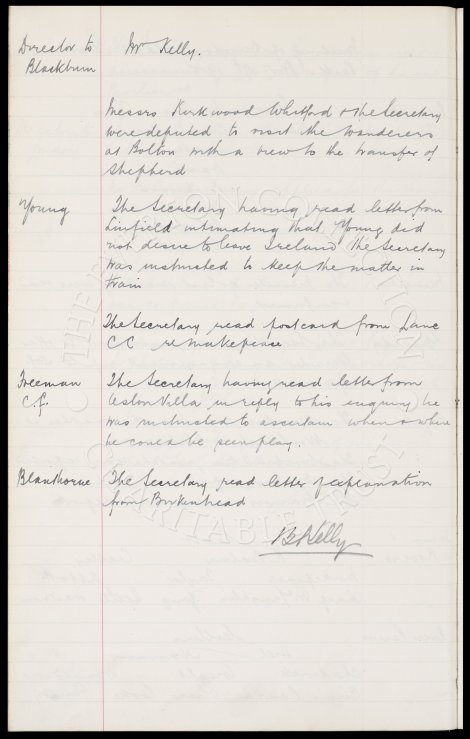 Director to Mr Kelly.
Blackburn
Messrs Kirkwood Whitford & the Secretary
were deputed to visit the Wanderers
at Bolton with a view to the transfer of
Shepherd
Young The Secretary having read letter from
Linfield intimating that Young did
not desire to leave Ireland the Secretary
was instructed to keep the matter in
train
The Secretary read postcard from Dane
CC re Makepeace
Freeman The Secretary having read letter from
C.f. Aston Villa in reply to his enquiry he
was instructed to ascertain when & where
he could be seen play.
Blanthorne The Secretary read letter of explanation
from Birkenhead
Kelly
THE
CHARITABLE TRUST